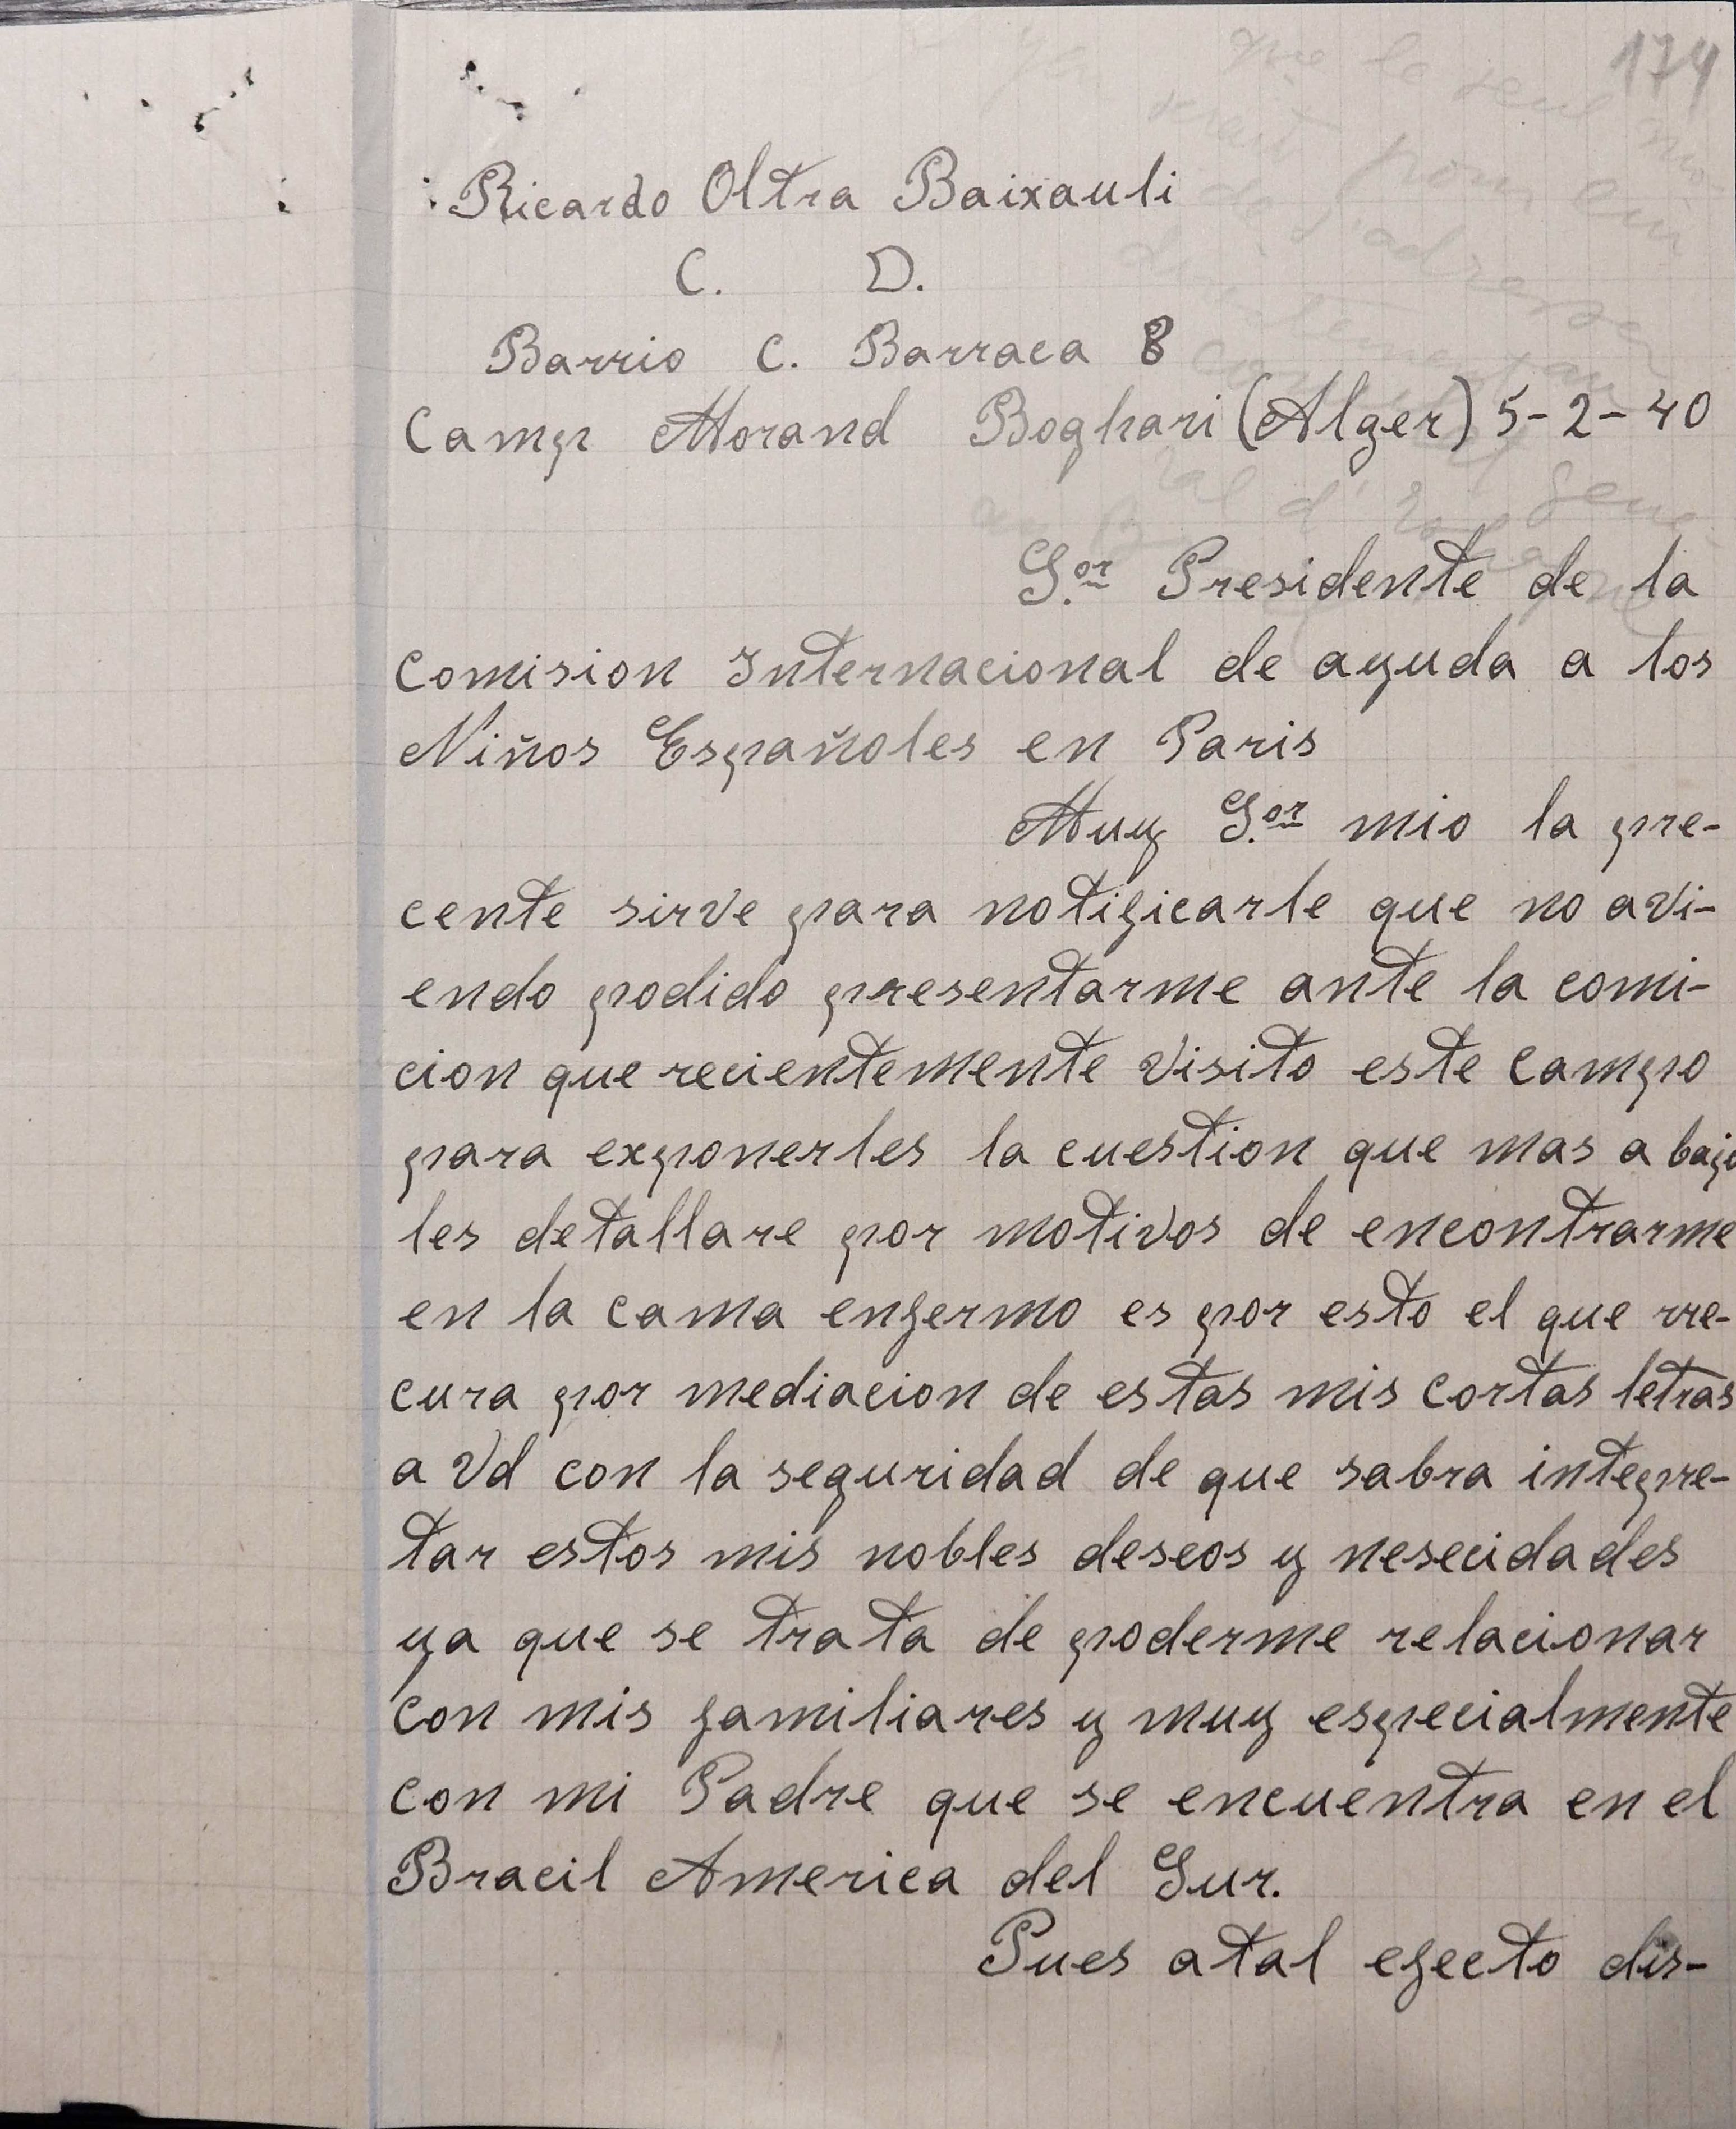 174
Ricardo Oltra Baixauli
C. D.
Barrio C. Barraca 8
Camp Morand Boghari (Alger) 5-2-40
S.or Presidente de la
Comision Internacional de ayuda a los
Niños Españoles en Paris
Muy S.or mio la pre-
cente sirve para notificarle que no avi-
endo podido presentarme ante la comi-
cion que recientemente visito este campo
para exponerles la cuestion que mas a bajo
les detallare por motivos de encontrarme
en la cama enfermo es por esto el que rre-
cura por mediacion de estas mis cortas letras
a Vd con la seguridad de que sabra intepre-
tar estos mis nobles deseos y nesecidades
ya que se trata de poderme relacionar
con mis familiares y muy especialmente
con mi Padre que se encuentra en el
Bracil America del Sur.
Pues atal efecto dis-